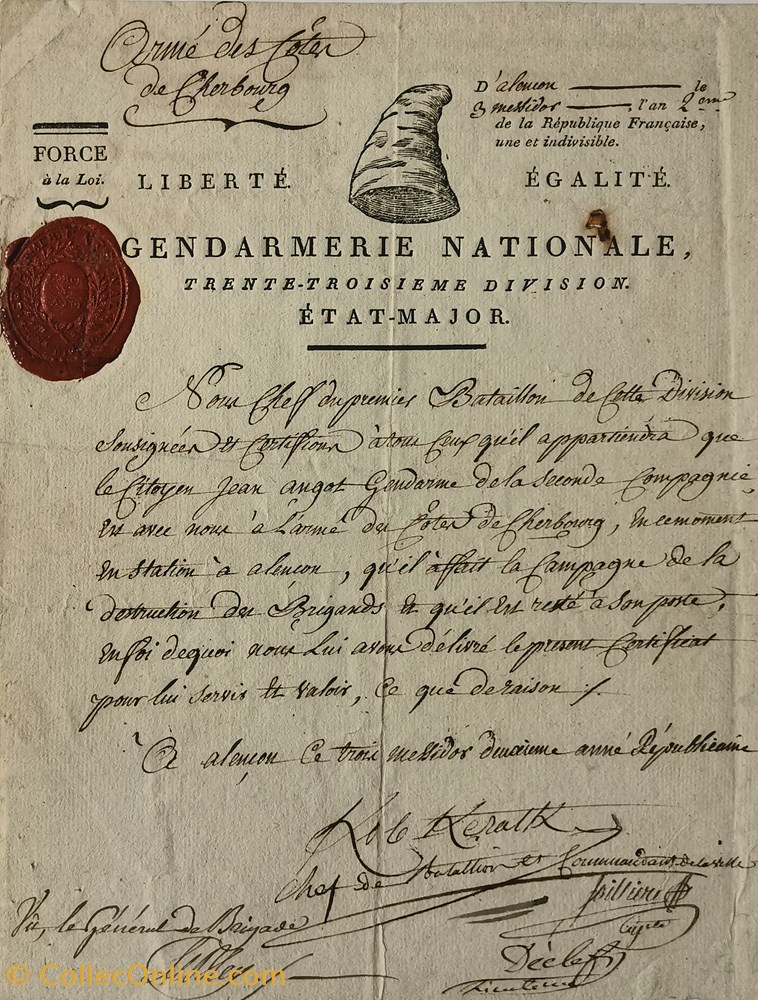 Armé des Côtes
de Cherbourg
D'alencon le
3 messidor, l'an 2eme
de la République Française,
une et indivisible.
FORCE
à la Loi.
LIBERTÉ.
ÉGALITÉ.
GENDARMERIE NATIONALE,
TRENTE-TROISIEME DIVISION.
ÉTAT-MAJOR.
Nous Cheff du premier Bataillon de Cette Division
Soussignées et Certifions à tous Ceux qu'il appartiendra que
le Citoyen Jean angot Gendarme de la Seconde Compagnie,
Est avec nous à L'armé des Côtes de Cherbourg, En ce moment
En Station à alencon, qu'il à fait la Campagne de la
destruction des Brigands Et qu'il Est resté à Son poste,
En foi de quoi nous Lui avons délivré le present Certificat
pour lui servir Et valoir, Ce que de raison ./.
A alençon Ce trois messidor deuxieme anné Républicaine
Rob Kératk
Chef de Batallion et Commandant de la ville
Vû, le Général de Brigade
© CollecOnline.com